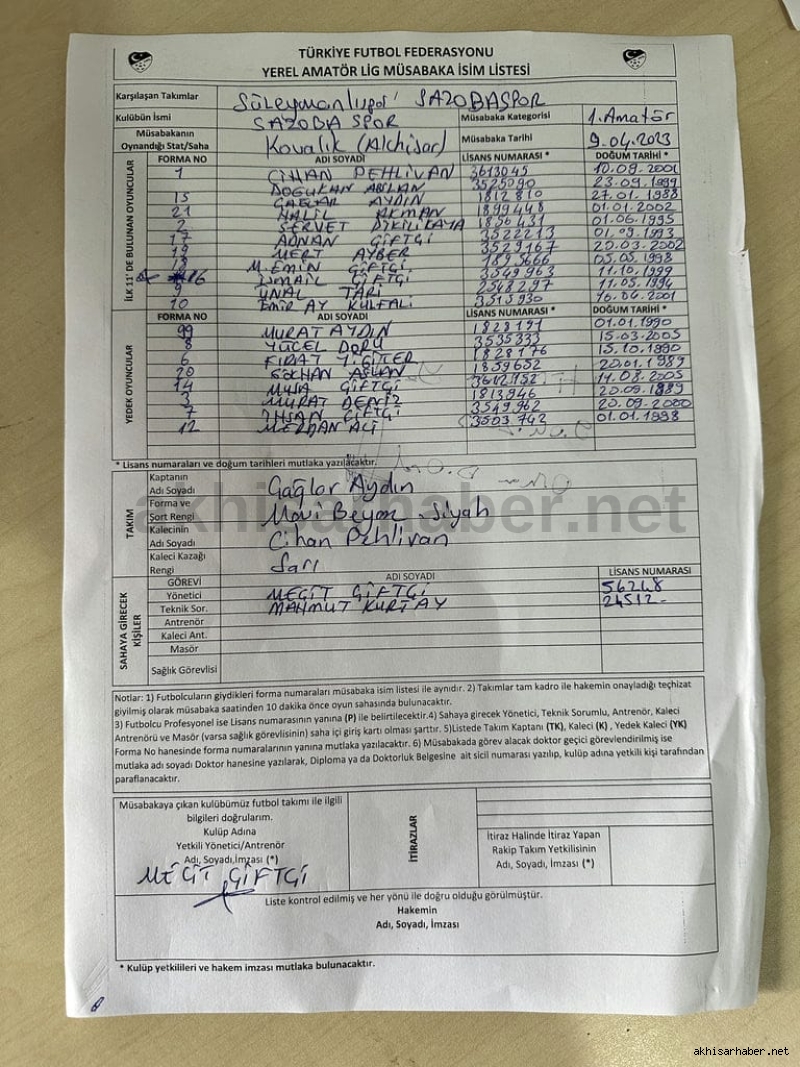 TÜRKİYE FUTBOL FEDERASYONU
YEREL AMATÖR LİG MÜSABAKA İSİM LİSTESİ
Karşılaşan Takımlar Süleymanlıspor SAZOBASPOR
Kulübün İsmi SAZOBA SPOR Müsabaka Kategorisi 1. Amatör
Müsabakanın Oynandığı Stat/Saha Müsabaka Tarihi 9.04.2023
İLK 11' DE BULUNAN OYUNCULAR
FORMA NO ADI SOYADI LİSANS NUMARASI * DOĞUM TARİHİ *
1 CİHAN PEHLİVAN 3613045 10.09.2001
DOĞUKAN ASLAN 3525090 23.09.1999
15 ÇAĞLAR AYDIN 1812810 27.01.1988
21 HALİL AKMAN 1899448 01.01.2002
2 SERVET DİKİLİKAYA 1856431 01.06.1995
17 ADNAN ÇİFTÇİ 3522213 01.09.1993
19 MERT AYBER 3529167 20.03.2002
M.EMİN ÇİFTÇİ 1895666 05.05.1998
16 İSMAİL ÇİFTÇİ 3549963 11.10.1999
9 ÜNAL TARI 2548297 11.05.1994
10 EMİR AY 3515930 16.06.2001
YEDEK OYUNCULAR
FORMA NO ADI SOYADI LİSANS NUMARASI * DOĞUM TARİHİ *
99 MURAT AYDIN 1828191 01.01.1990
8 YÜCEL DORU 3535333 15.03.2005
6 FIRAT YİĞİTER 1828176 15.10.1990
20 GÖKHAN ASLAN 1859652 20.01.1989
14 MUSA ÇİFTÇİ 3612752 14.08.2005
3 MURAT DENİZ 1813946 20.09.1989
7 İHSAN ÇİFTÇİ 3549962 20.09.2000
12 MERDAN ALİ 3503742 01.01.1998
* Lisans numaraları ve doğum tarihleri mutlaka yazılacaktır.
TAKIM
Kaptanın Adı Soyadı Çağlar Aydın
Forma ve Şort Rengi Mavi Beyaz Siyah
Kalecinin Adı Soyadı Cihan Pehlivan
Kaleci Kazağı Rengi Sarı
akhisarhaber.net
SAHAYA GİRECEK KİŞİLER
GÖREVİ ADI SOYADI LİSANS NUMARASI
Yönetici MECİT ÇİFTÇİ 56248
Teknik Sor. MAHMUT KURTAY 24512
Antrenör
Kaleci Ant.
Masör
Sağlık Görevlisi
Notlar: 1) Futbolcuların giydikleri forma numaraları müsabaka isim listesi ile aynıdır. 2) Takımlar tam kadro ile hakemin onayladığı teçhizat
giyilmiş olarak müsabaka saatinden 10 dakika önce oyun sahasında bulunacaktır.
3) Futbolcu Profesyonel ise Lisans numarasının yanına (P) ile belirtilecektir.4) Sahaya girecek Yönetici, Teknik Sorumlu, Antrenör, Kaleci
Antrenörü ve Masör (varsa sağlık görevlisinin) saha içi giriş kartı olması şarttır. 5)Listede Takım Kaptanı (TK), Kaleci (K) , Yedek Kaleci (YK)
Forma No hanesinde forma numaralarının yanına mutlaka yazılacaktır. 6) Müsabakada görev alacak doktor geçici görevlendirilmiş ise
mutlaka adı soyadı Doktor hanesine yazılarak, Diploma ya da Doktorluk Belgesine ait sicil numarası yazılıp, kulüp adına yetkili kişi tarafından
paraflanacaktır.
Müsabakaya çıkan kulübümüz futbol takımı ile ilgili
bilgileri doğrularım.
Kulüp Adına
Yetkili Yönetici/Antrenör
Adı, Soyadı,İmzası (*)
MECİT ÇİFTÇİ
İTİRAZLAR
İtiraz Halinde İtiraz Yapan
Rakip Takım Yetkilisinin
Adı, Soyadı, İmzası (*)
Liste kontrol edilmiş ve her yönü ile doğru olduğu görülmüştür.
Hakemin
Adı, Soyadı, İmzası
* Kulüp yetkilileri ve hakem imzası mutlaka bulunacaktır.
akhisarhaber.net